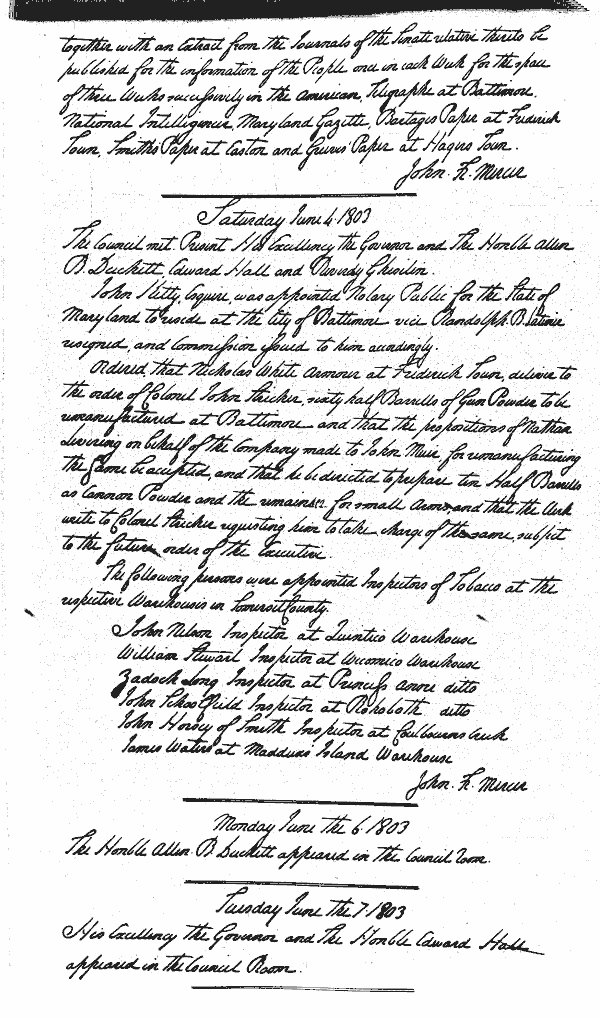 together with an Extract from the Journals of the Senate relative thereto be
published for the information of the People once in each Week for the space
of three Weeks successively in the American, Telegraphe at Baltimore.
National Intelligencer, Maryland Gazette, Bartgis's Paper at Frederick
Town, Smith's Paper at Easton and Grieves Paper at Hagers Town.
John. F. Mercer
Saturday June 4. 1803
The Council met. Present His Excellency the Governor and The Honble Allen
B. Duckett, Edward Hall and Reverdy Ghiselin.
John Kilty, Esquire, was appointed Notary Public for the State of
Maryland to reside at the City of Baltimore vice Randolph. B. Latimer
resigned, and Commission issued to him accordingly.
Ordered, that Nicholas White Armourer at Frederick Town, deliver to
the order of Colonel John Stricker, sixty half Barrells of Gun Powder to be
remanufactured at Baltimore and that the propositions of Nathan
Levering on behalf of the Company made to John Muir for remanufacturing
the same be accepted, and that he be directed to prepare ten Half Barrells
as Cannon Powder and the remainder for small Arms, and that the Clerk
write to Colonel Stricker requesting him to take charge of the same, subject
to the future order of the Executive.
The following persons were appointed Inspectors of Tobacco at the
respective Warehouses in Somerset County.
John Nelson Inspector at Quintico Warehouse
William Stewart Inspector at Wicomico Warehouse
Zadock Long Inspector at Princess Anne ditto
John Schoolfield Inspector at Rehoboth ditto
John Horsey of Smith Inspector at Coulbourns Creek
James Waters at Madduxs Island Warehouse
John. F. Mercer
Monday June the 6. 1803
The Honble Allen. B. Duckett appeared in the Council room.
Tuesday June the 7. 1803
His Excellency the Governor and The Honble Edward Hall
appeared in the Council Room.